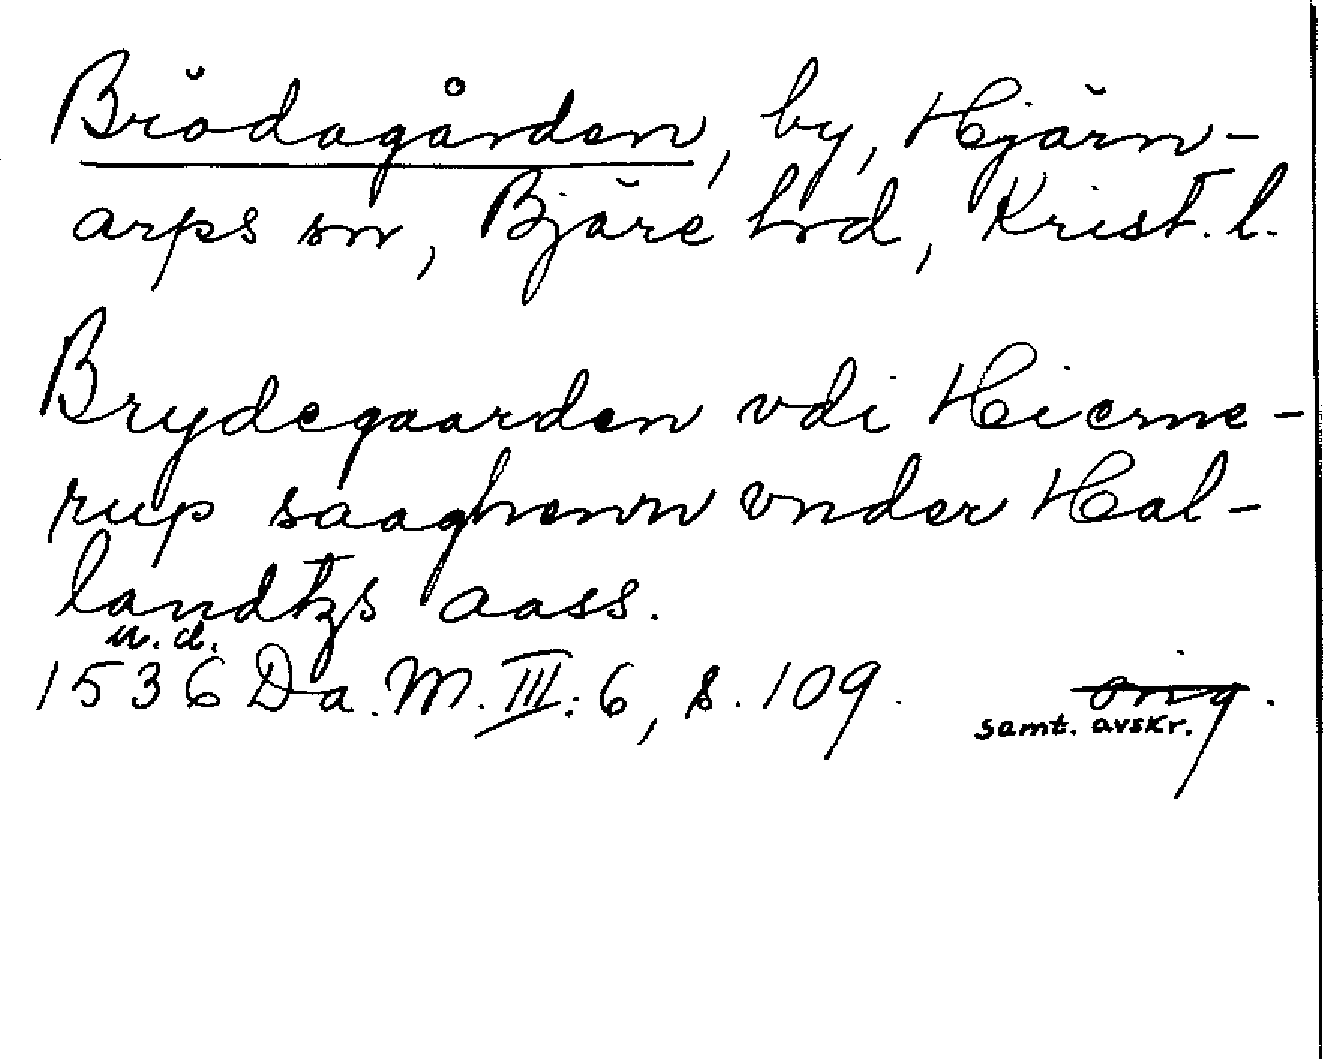 Brödagården, by, Hjärn-
arps sn, Bjäre hrd, Krist. l.
Brydegaarden vdi Hierne-
rup saaghenn vnder Hal-
landtzs aass.
u.d.
1536 Da. M. III: 6, s. 109. orig.
samt. avskr.